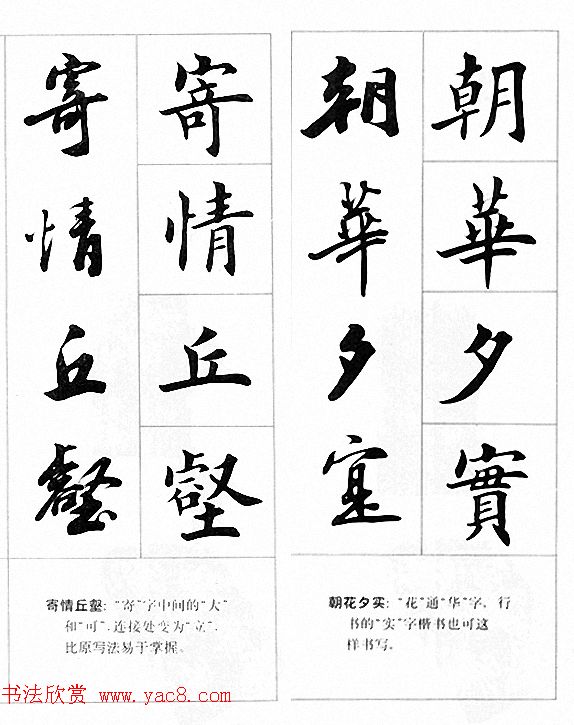 寄情丘壑
寄情丘壑
寄情丘壑:“寄”字中间的“大”
和“可”,连接处变为“立”,
比原写法易于掌握。
朝華夕寔
朝華夕實
朝花夕实:“花”通“华”字。行
书的“实”字楷书也可这
样书写。
书法欣赏 www.yac8.com